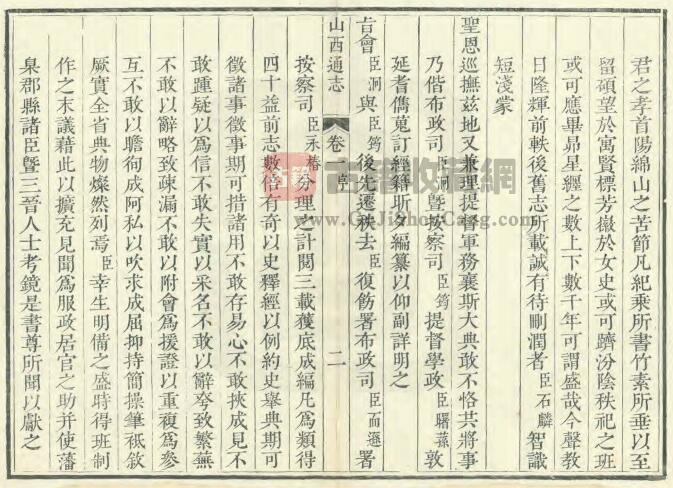 君之孝首陽綿山之苦節凡紀乘所書竹素所垂以至
留碩望於寓賢標芳徽於女史或可躋汾陰秩祀之班
或可應畢昴星纏之數上下數千年可謂盛哉今聲教
日隆輝前軼後舊志所載誠有待刪潤者臣石麟智識
短淺蒙
聖恩巡撫兹地又兼理提督軍務襄斯大典敢不恪共將事
乃偕布政司臣泂曁按察司臣筠提督學政臣曙蓀敦
延耆儁蒐訂經籍斯夕編纂以仰副詳明之
旨會臣泂與臣筠後先遷秩去復飭署布政司臣而遜署
山西通志 卷 序 二
按察司臣永椿分理之計閱三載獲底成編凡爲類得
四十益前志數倍有奇以史釋經以例約史舉典期可
徵諸事徵事期可措諸用不敢存易心不敢挾成見不
敢踵疑以爲信不敢失實以采名不敢以辭夸致繁蕪
不敢以辭略致疎漏不敢以附會爲援證以重複爲參
互不敢以瞻徇成阿私以吹求成屈抑持簡操筆祗敘
厥實全省典物燦然列焉臣幸生明備之盛時得班制
作之末議藉此以擴充見聞爲服政居官之助并使藩
臬郡縣諸臣曁三晉人士考鏡是書尊所聞以獻之
古籍收藏網
www.GuJiShouCang.com